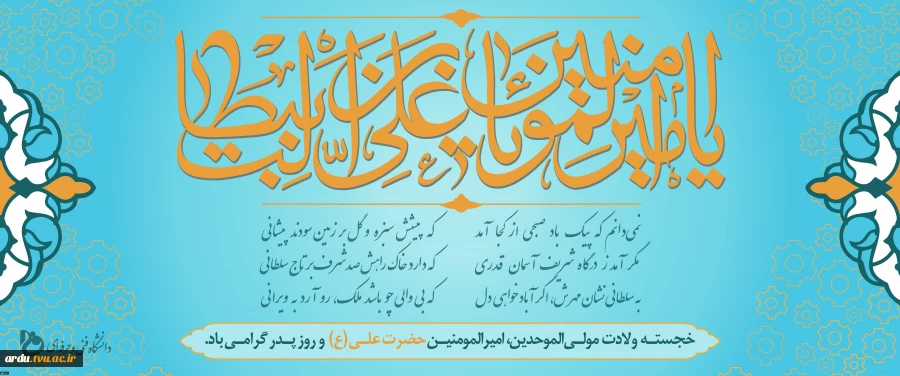 یا امیرالمومنین یا علی بن ابیطالب
نمی‌دانم که پیک باد صبحی از کجا آمد که پیشش سبزه و گل بر زمین سودند پیشانی
مگر آمد ز درگاه شریف آسمان قدری که دارد خاک راهش صد شرف بر تاج سلطانی
به سلطانی نشان مهرش، اگر آباد خواهی دل که بی والی چو باشد ملک، رو آرد به ویرانی
خجسته ولادت مولی‌الموحدین، امیرالمومنین حضرت علی (ع) و روز پدر گرامی باد.
دانشگاه فنی و حرفه‌ای
ardu.tvu.ac.ir